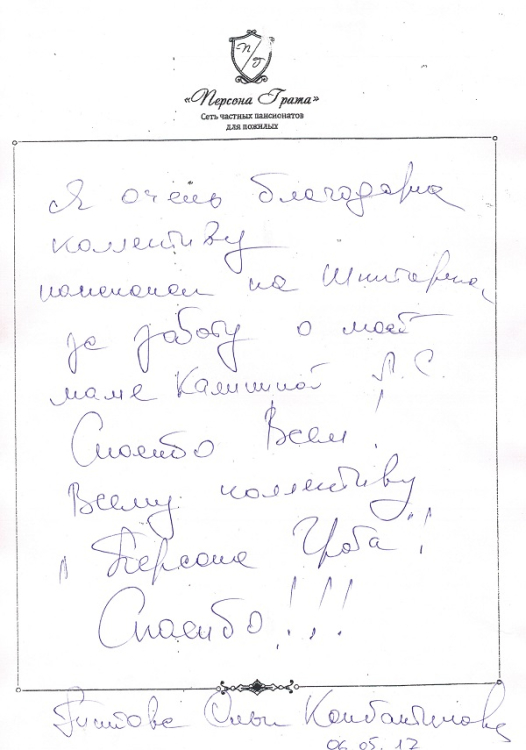 П Г
«Персона Грата»
Сеть частных пансионатов
для пожилых
Я очень благодарна
коллективу
на
за заботу о моей
маме Калининой Л. С.
Спасибо Всем!
Всему коллективу
"Персона Грата!"
Спасибо!!!
Ольга Константиновна
06.05.17